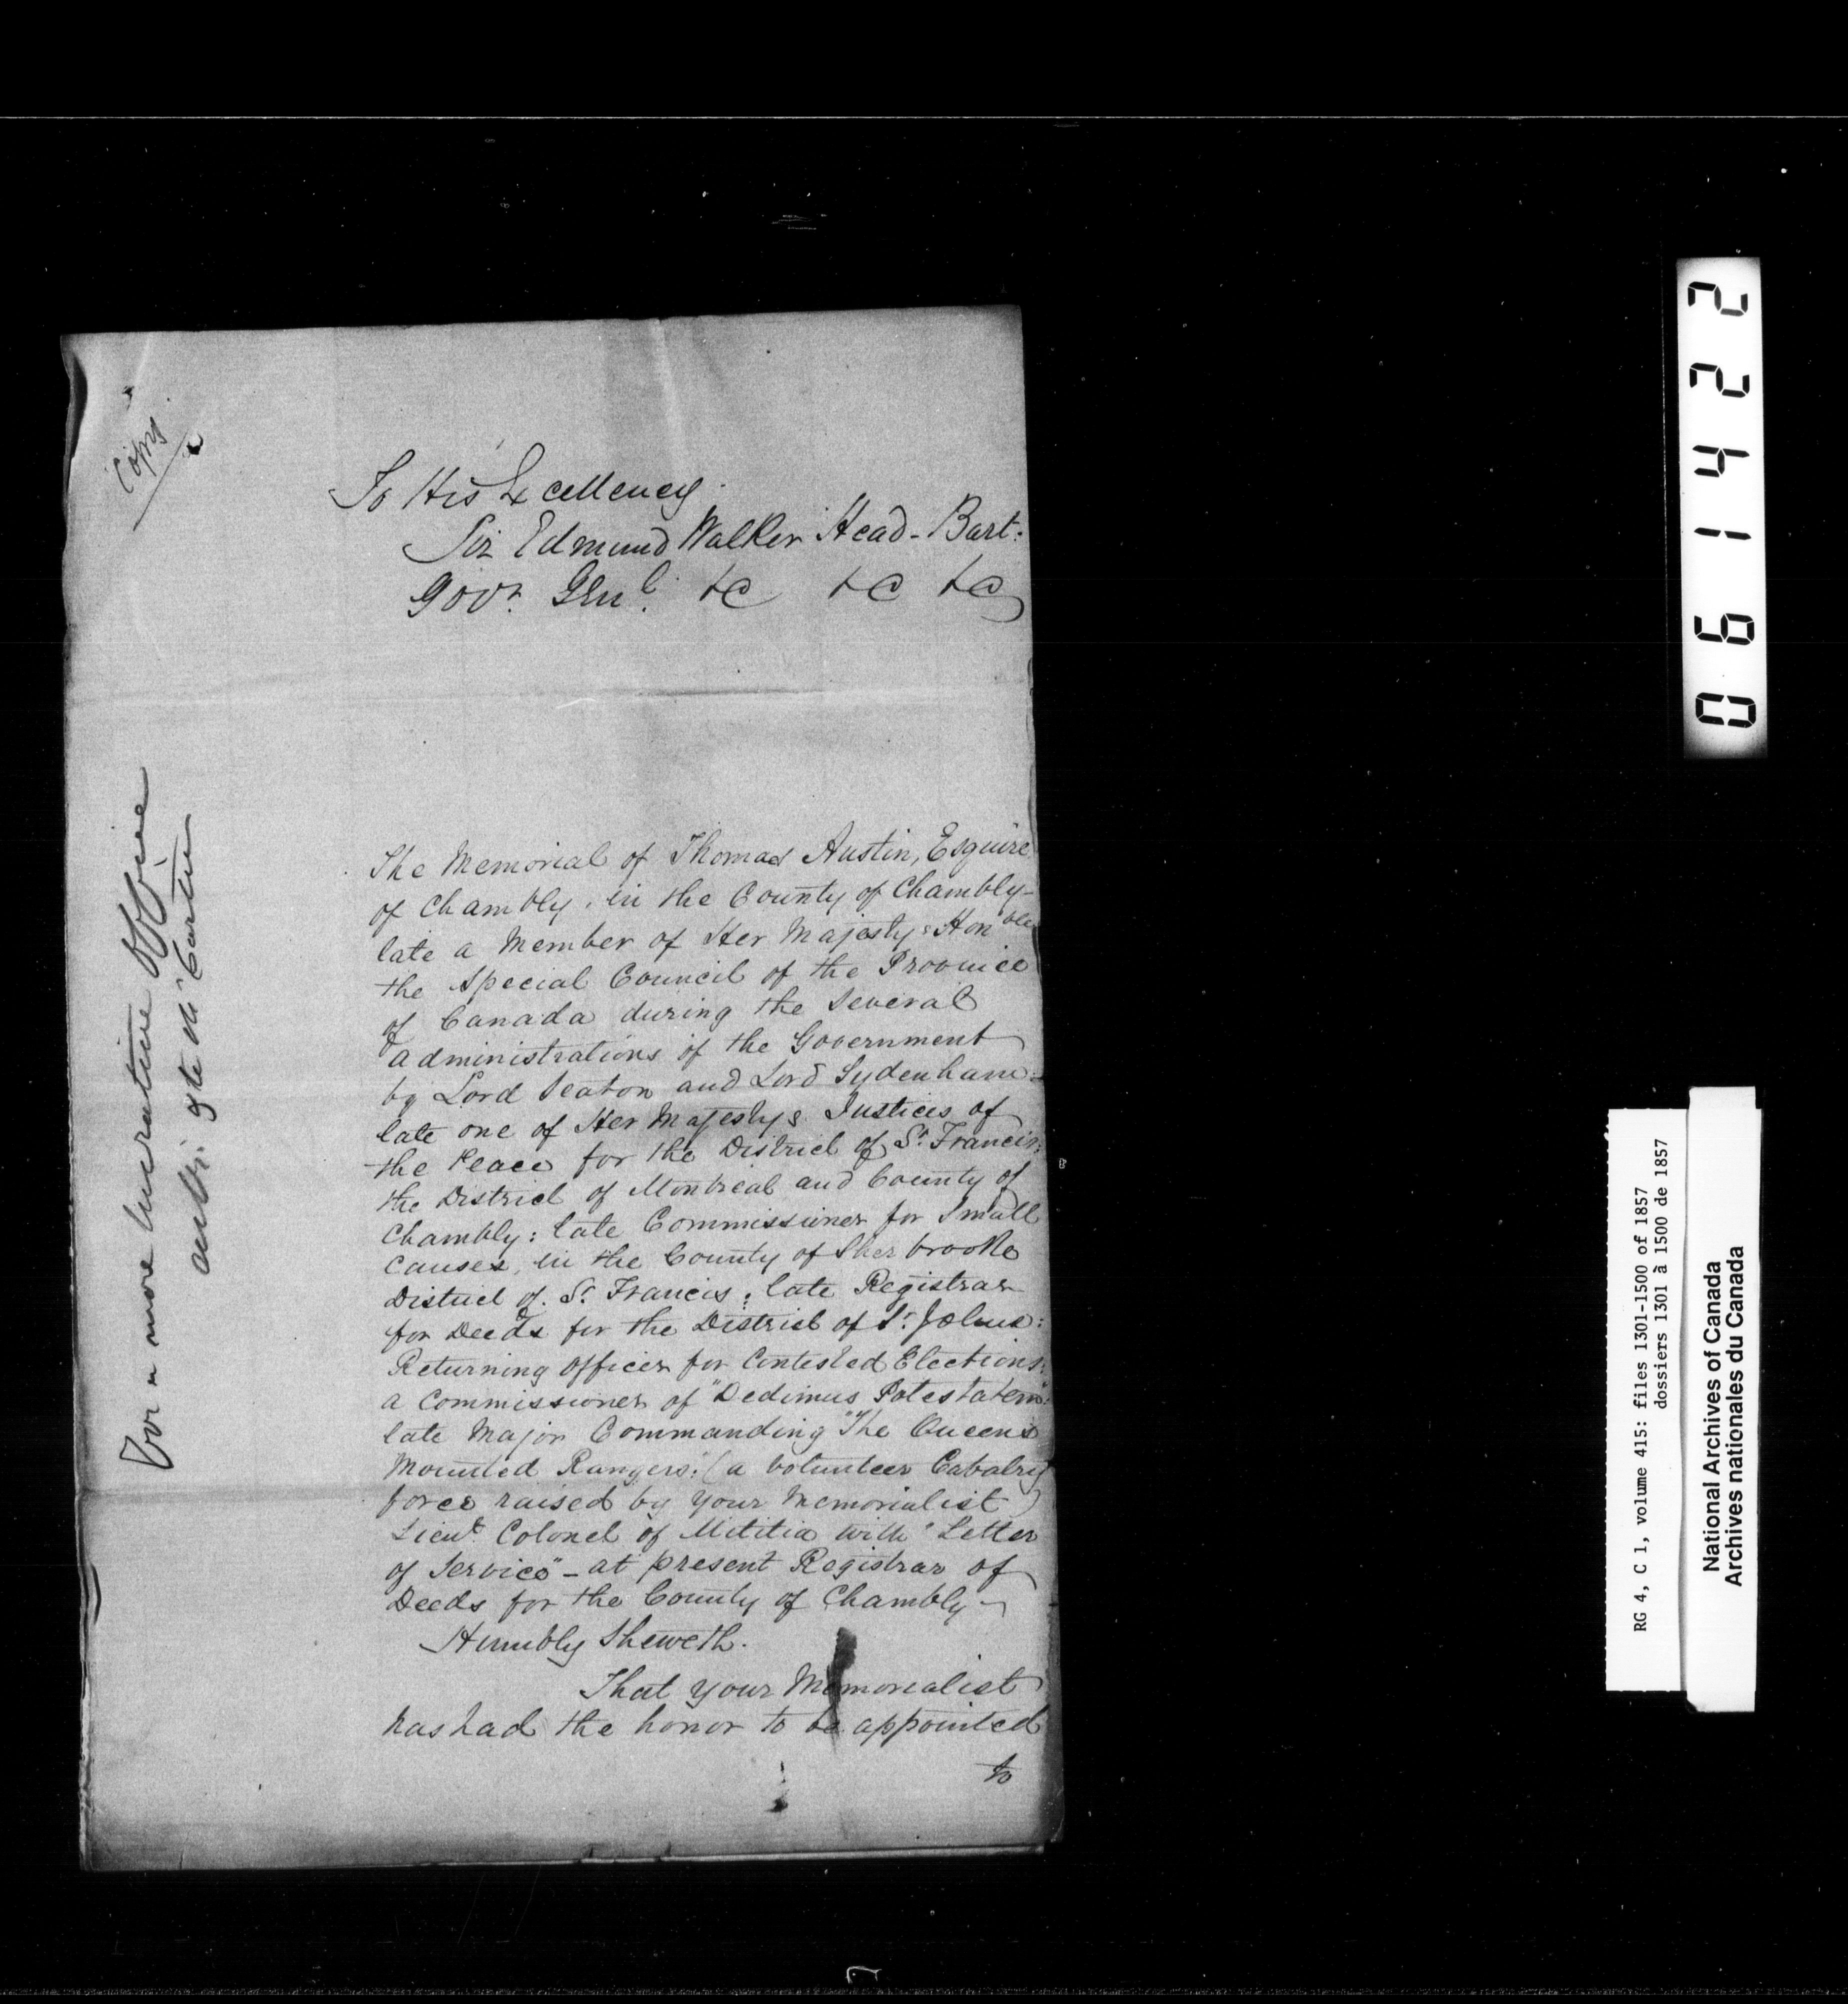 Copy
To His Excellency
Sir Edmund Walker Head - Bart:
Govr. Genl. &c &c &c
The Memorial of Thomas Austin, Esquire
of Chambly, in the County of Chambly -
late a Member of Her Majestys Honble
the Special Council of the Province
of Canada during the several
administrations of the Government
by Lord Seaton and Lord Sydenham:
late one of Her Majestys Justices of
the Peace for the District of St. Francis:
the District of Montreal and County of
Chambly: late Commissioner for Small
Causes, in the County of Sherbrooke
District of St. Francis: late Registrar
for Deeds for the District of St. Johns:
Returning Officer for Contested Elections:
a Commissioner of "Dedimus Potestatem"
late Major Commanding "The Queens
Mounted Rangers: (a volunteer Cavalry
force raised by your Memorialist)
Lieut. Colonel of Militia with "Letter
of Service" - at present Registrar of
Deeds for the County of Chambly -
Humbly Sheweth.
That your Memorialist
has had the honor to be appointed
to
For a more lucrative Office
Cartier
061422
RG 4, C 1, volume 415: files 1301-1500 of 1857
dossiers 1301 à 1500 de 1857
National Archives of Canada
Archives nationales du Canada